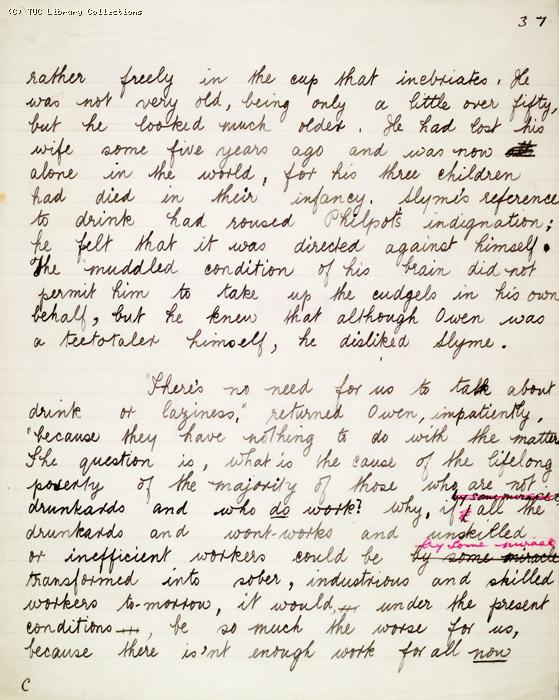 (C) TUC Library Collections
37
rather freely in the cup that inebriates. He
was not very old, being only a little over fifty,
but he looked much older. He had lost his
wife some five years ago and was now
alone in the world, for his three children
had died in their infancy. Slyme's reference
to drink had roused Philpot's indignation;
he felt that it was directed against himself.
The muddled condition of his brain did not
permit him to take up the cudgels in his own
behalf, but he knew that although Owen was
a teetotaler himself, he disliked Slyme.
"There's no need for us to talk about
drink or laziness," returned Owen, impatiently,
"because they have nothing to do with the matter.
The question is, what is the cause of the lifelong
poverty of the majority of those who are not
by some miracle
drunkards and who do work? Why, if all the
drunkards and wont-works and unskilled
by some miracle
or inefficient workers could be by some miracle
transformed into sober, industrious and skilled
workers to-morrow, it would, under the present
conditions, be so much the worse for us,
because there is'nt enough work for all now
C